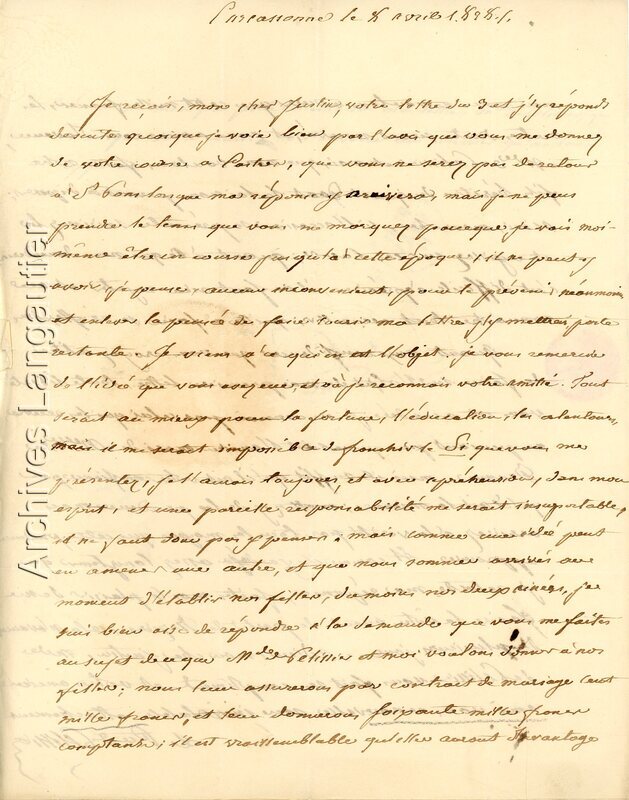 Carcassonne le 8 avril 1828./.
Je reçois, mon cher Justin, votre lettre du 3 et j'y réponds
desuite quoique je voie bien par l'avis que vous me donnez
de votre course a Castres, que vous ne serez pas de retour
a St Pons lorsque ma réponse y arrivera, mais je ne peus
prendre le tems que vous me marquez parceque je vais moi-
même être en course jusqu'à cette époque; il ne peut y
avoir, je pense, aucun inconvenient, pour le prévenir néanmoins
et enlever la pensée de faire courir ma lettre j'y mettrai poste
restante. Je viens a ce qui en est l'objet, je vous remercie
de l'idée que vous avez eue, et où je reconnois votre amitié. Tout
serait au mieux pour la fortune, l'éducation, les alentours,
mais il me serait impossible de franchir le Si que vous me
présentez, je l'aurais toujours, et avec apréhension, dans mon
esprit, et une pareille responsabilité me serait insuportable,
il ne faut donc pas y penser; mais comme une idée peut
en amener une autre, et que nous sommes arrivés au
moment d'établir nos filles, du moins nos deux ainées, je
suis bien aise de répondre a la demande que vous me faites
au sujet de ce que Mde de Pélissier et moi voulons donner à nos
filles; nous leur assurerons par contrat de mariage cent
mille francs, et leur donnerons soixante mille francs
comptants; il est vraissemblable qu'elles auront davantage
Archives Langautier